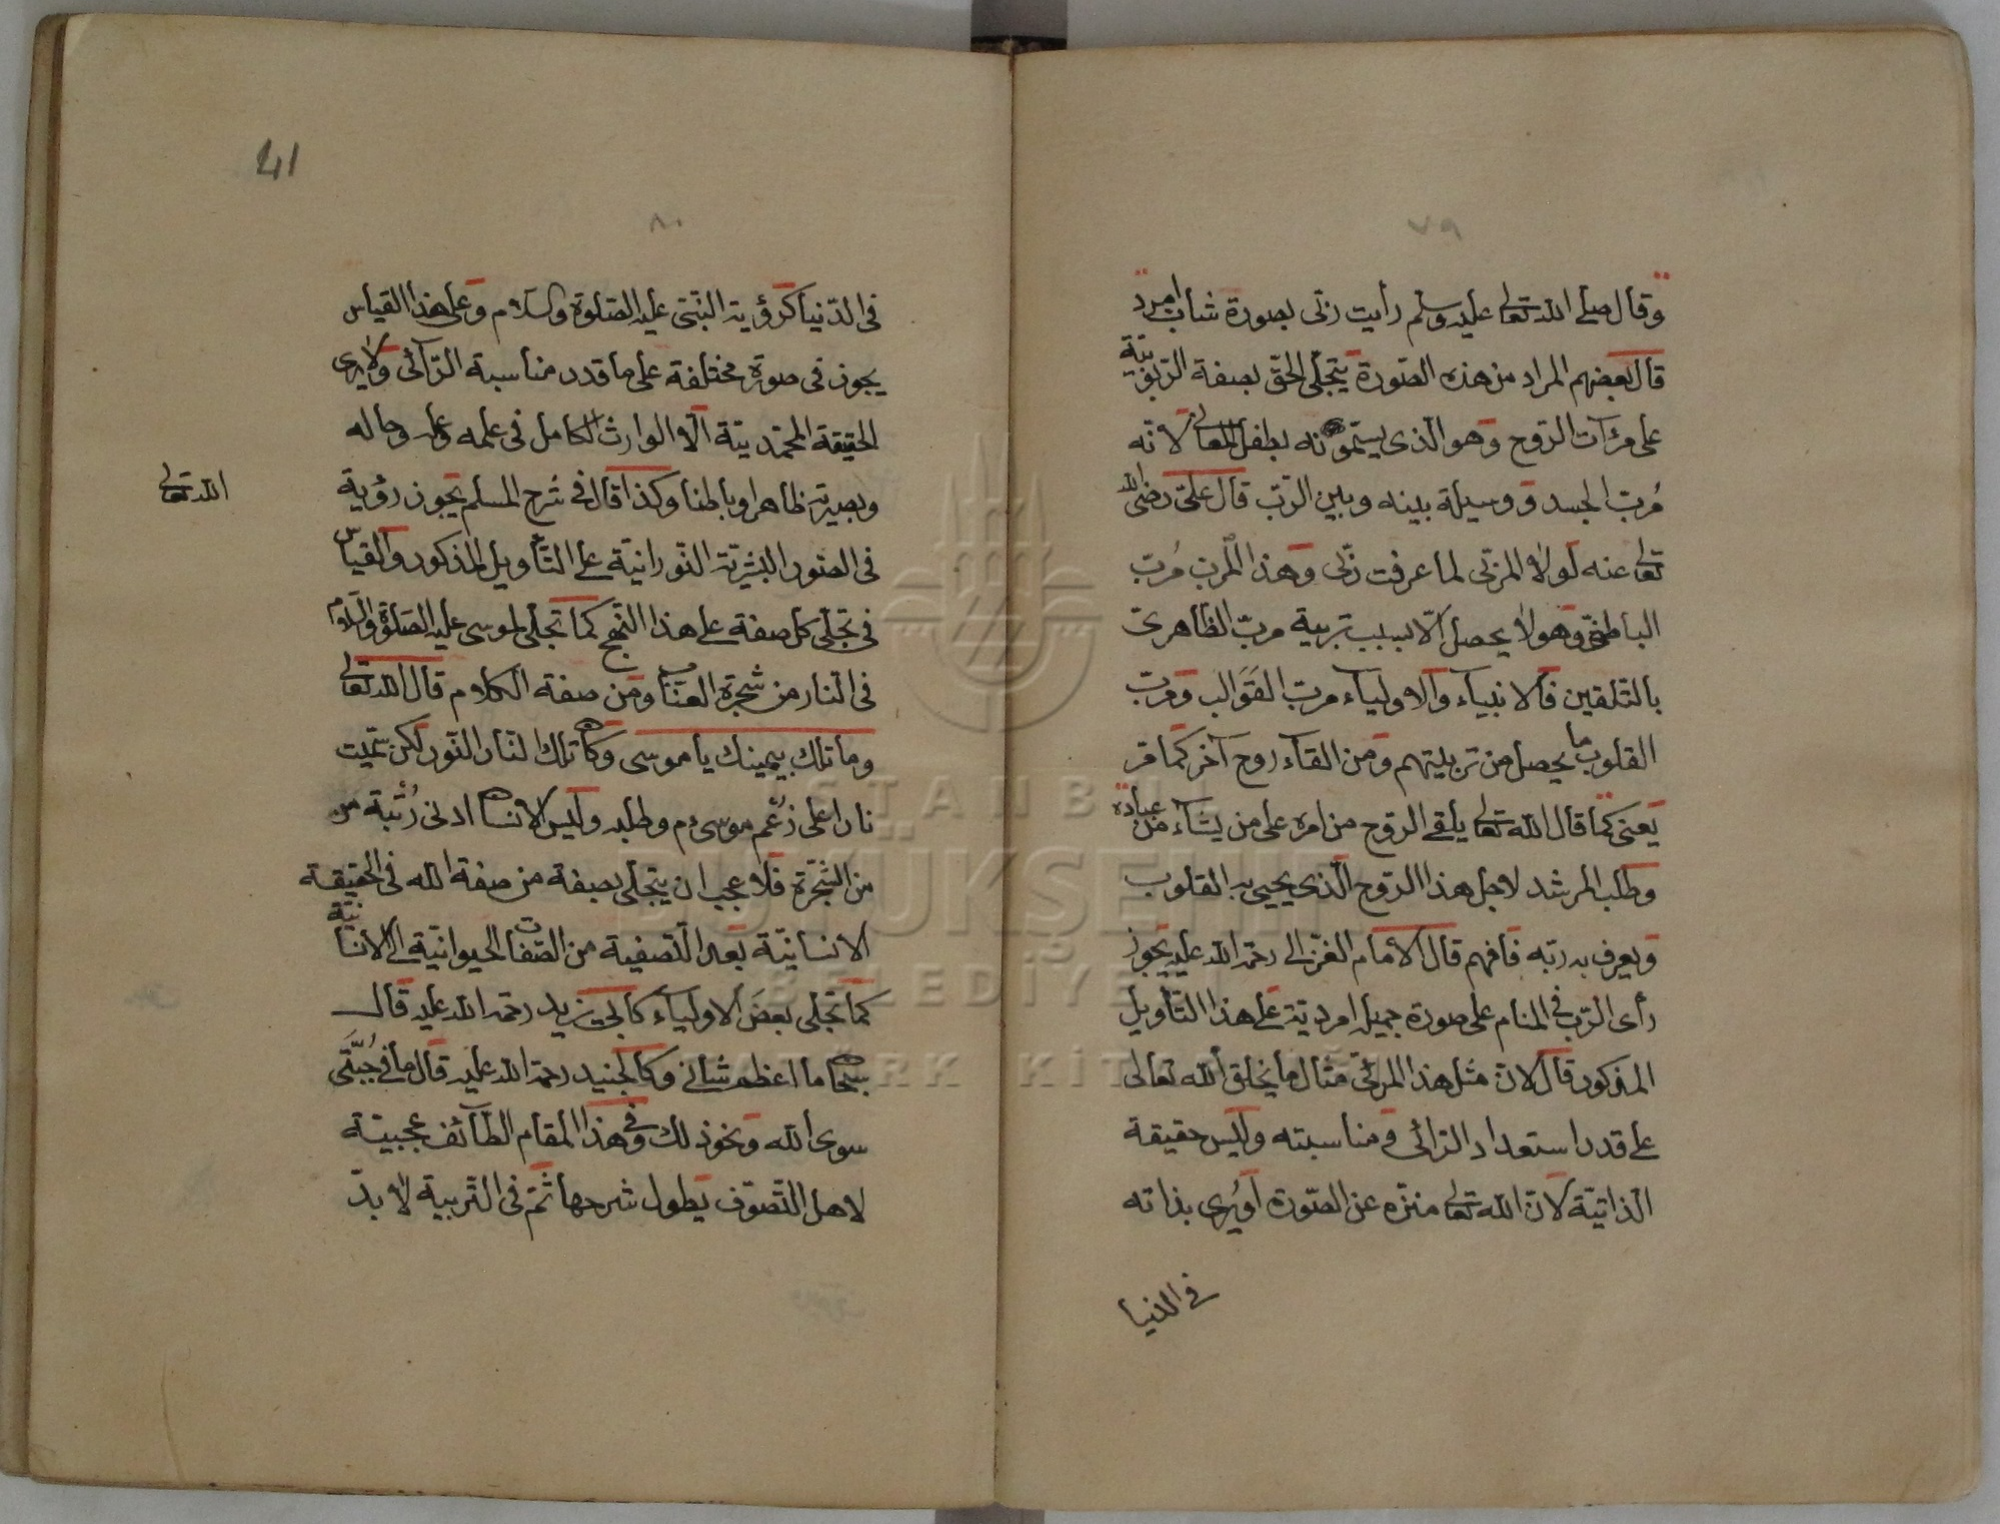 ٧٩
وقال صلى الله تعالى عليه وسلم رأيت ربّى بصورة شاب امرد
قال بعضهم المراد من هذه الصّورة يتجلّى الحقّ بصفة الرّبوبيّة
على مرآت الرّوح وهو الّذى يسمّونه بطفل المعانى لانّه
مُربّ الجسد ووسيلة بينه وبين الرّبّ قال علىّ رضى الله
تعالى عنه لولا المربّى لما عرفت ربّى وهذا المربّ مُربّ
الباطنىّ وهو لا يحصل الّا بسبب تربية مربّ الظاهرىّ
بالتّلقين فالانبيآء والاوليآء مربّ القَوَالب ومربّ
القلوب ما يحصل من تربيتهم ومن القآء روح آخر كما مرّ
يعنى كما قال الله تعالى يلقى الروح من امره على من يشآء من عباده
وطلب المرشد لاجل هذا الرّوح الّذى يحيى به القلوب
ويعرف به ربّه فافهم قال الامام الغزالى رحمة الله عليه يجوز
رأى الرّبّ فى المنام على صورة جميلة امرديّة على هذا التّأويل
المذكور قال لانّ مثل هذا المرئىّ مثال ما يخلق الله تعالى
على قدر استعداد الرّائى ومناسبته وليس حقيقة
الذاتيّة لانّ الله تعالى منزّه عن الصّورة او يُرى بذاته
فى الدنيا
41
٨٠
فى الدّنيا كرؤية النّبىّ عليه الصّلوة والسّلام وعلى هذا القياس
يجوز فى صورة مختلفة على ما قدر مناسبة الرّآئى ولا يرى
الحقيقة المحمّديّة الّا الوارث الكامل فى علمه وعمله وحاله
وبصيرته ظاهرا وباطنا وكذا قال فى شرح المسلم يجوز رؤية
الله تعالى
فى الصّور البشريّة النّورانيّة على التّأويل المذكور والقياس
فى تجلّى كل صفة على هذا النّهج كما تجلّى لموسى عليه الصّلوة والسّلام
فى النّار من شجرة العنّاب ومن صفة الكلام قال الله تعالى
وما تلك بيمينك يا موسى وكان تلك النّار النّور لكن سمّيت
نارا على زُعْم موسى ءم وطلبه وليس الانسان ادنى رُتْبة من
من الشّجرة فلا عجب ان يتجلّى بصفة من صفة الله فى الحقيقة
الانسانيّة بعد التّصفية من الصّفات الحيوانيّة الى الانسانيّة
كما تجلى بعضَ الاوليآء كابى يزيد رحمة الله عليه قال
سبحانى ما اعظم شانى وكالجنيد رحمة الله عليه قال ما فى جُبَّتى
سوى الله ونحو ذلك وفى هذا المقام لطآئف عجيبة
لاهل التّصوّف يطول شرحها ثمّ فى التّربية لا بدّ